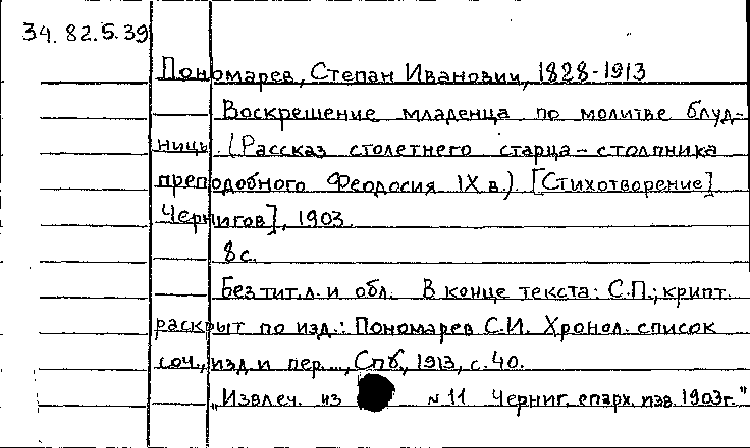 34.82.5.39
Пономарев, Степан Иванович, 1828-1913
Воскрешение младенца по молитве блуд-
ницы. (Рассказ столетнего старца-столпника
преподобного Феодосия IX в.) [Стихотворение]
Чернигов], 1903.
8 с.
Без тит.л. и обл. В конце текста: С.П.; крипт.
раскрыт по изд.: Пономарев С.И. Хронол. список
соч., изд. и пер. ..., Спб., 1913, с. 40.
„Извлеч. из № 11 Черниг. епарх. изв. 1903г."